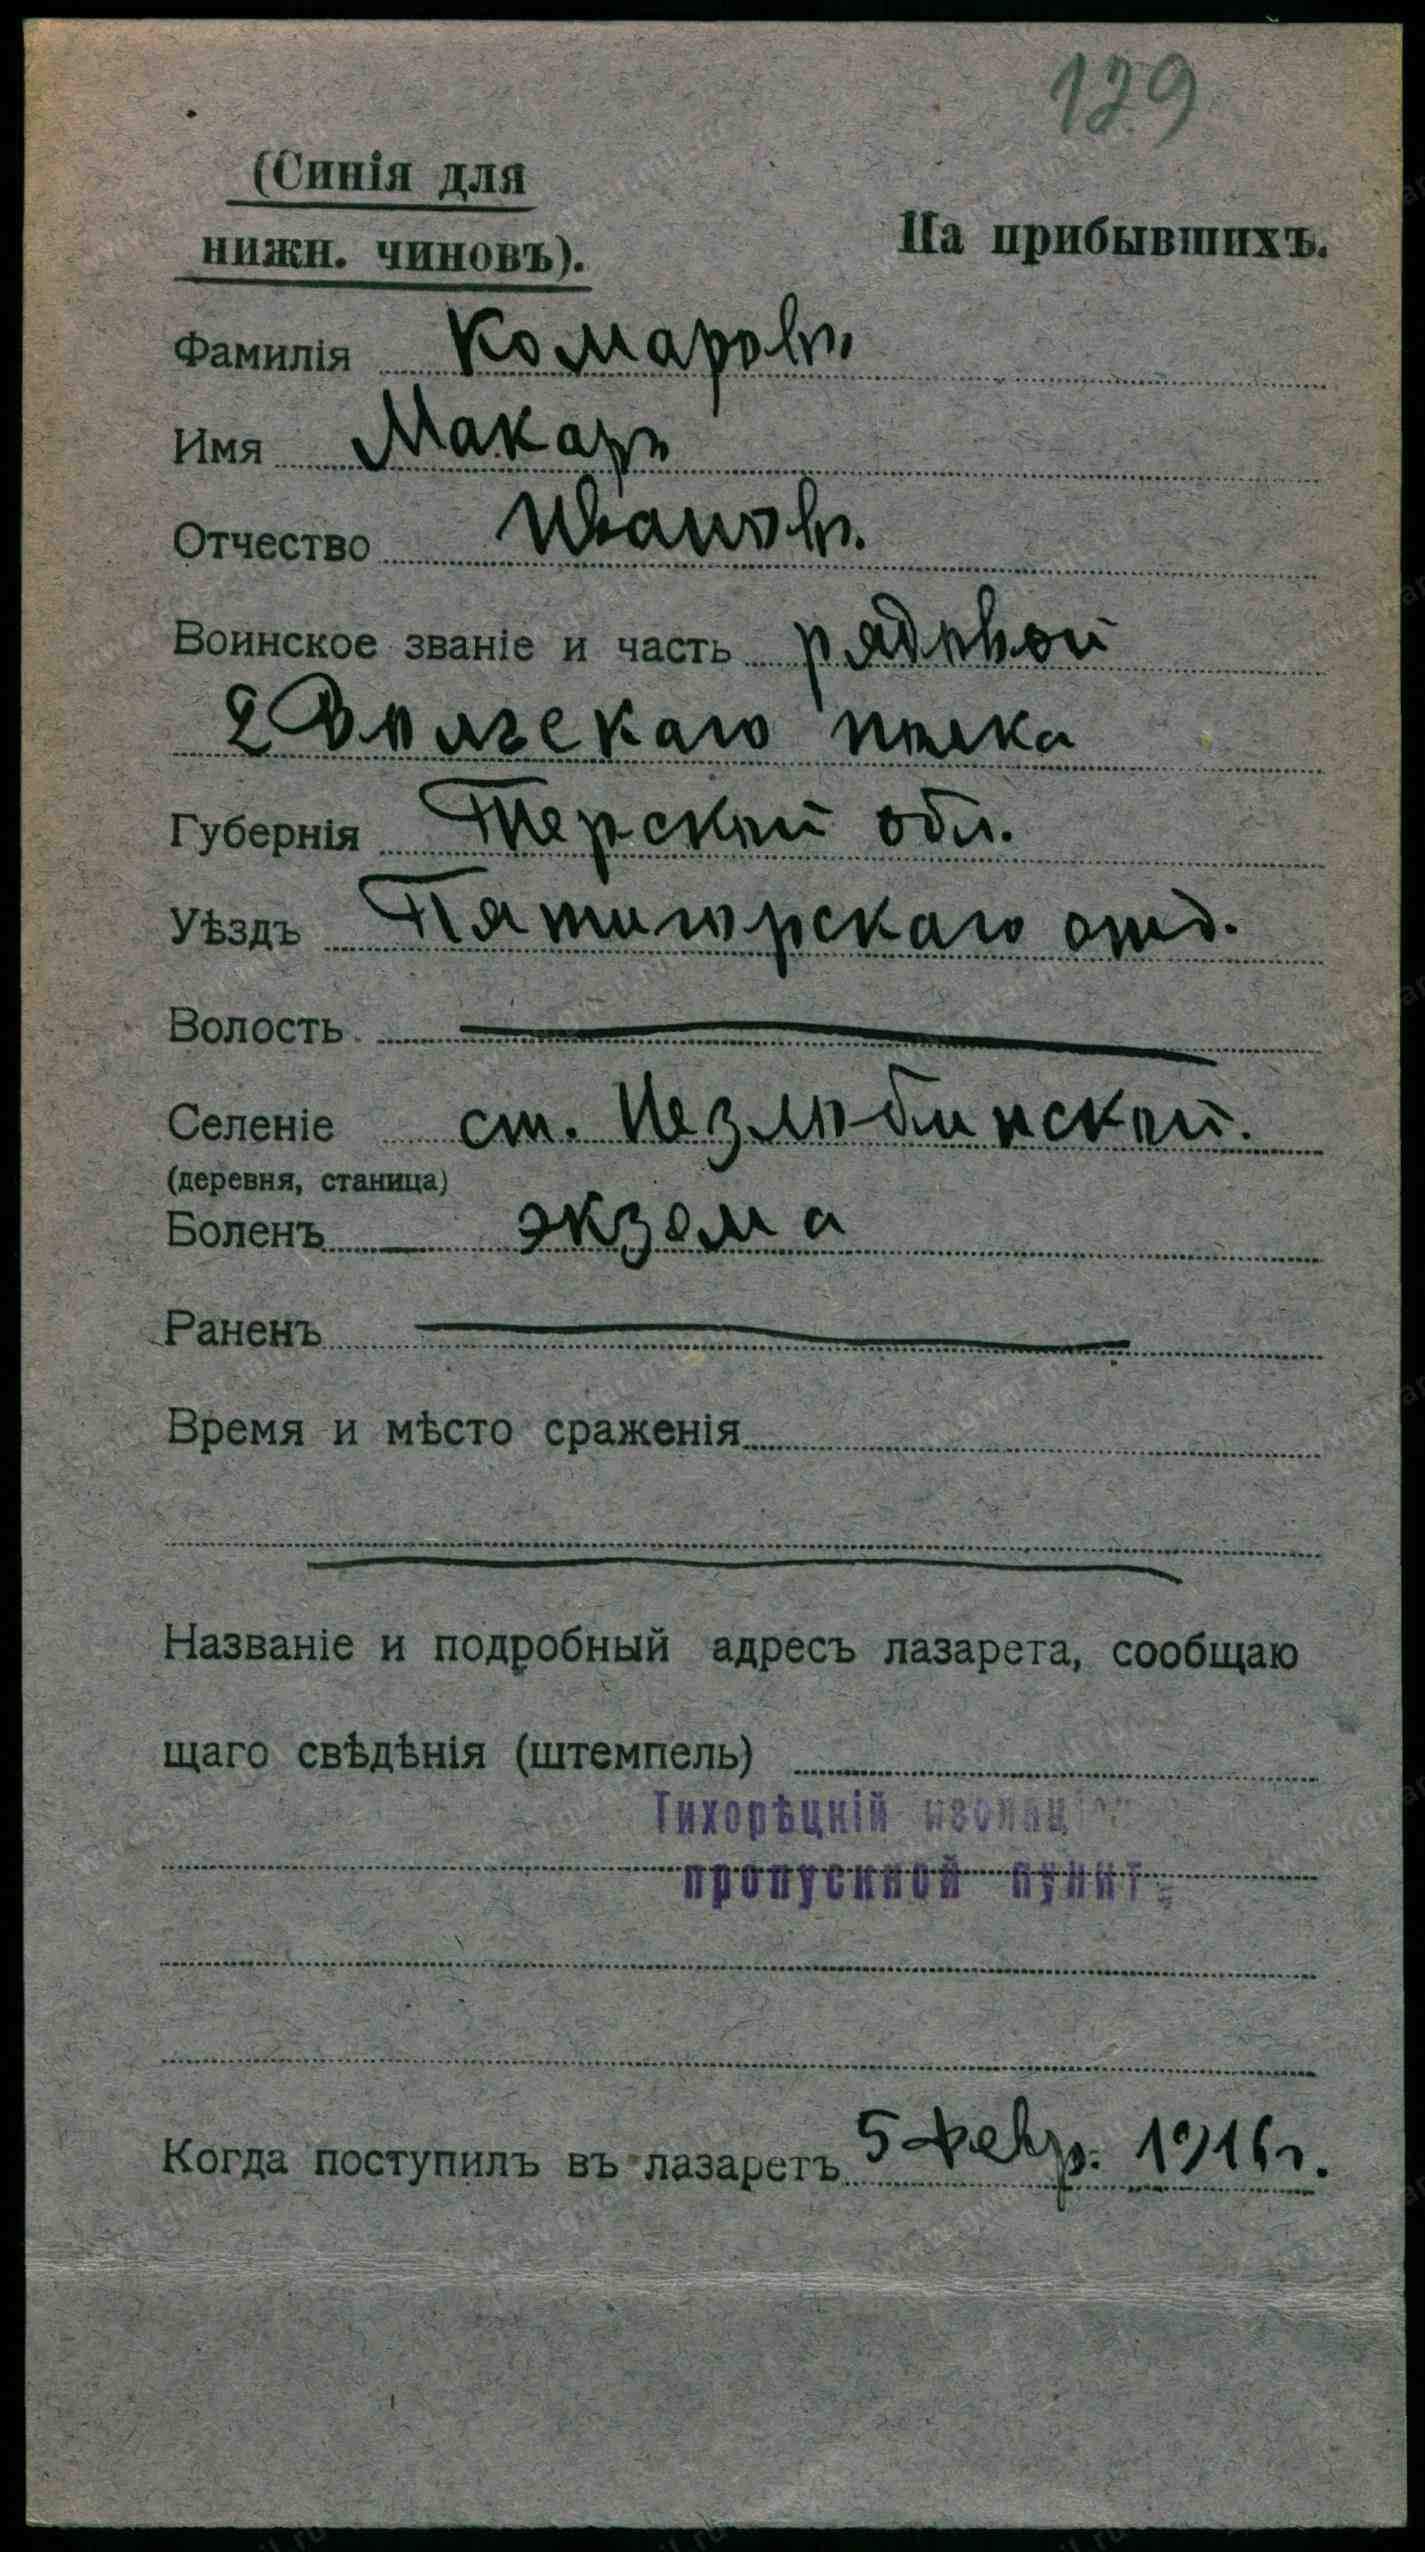 129
(Синія для
нижн. чиновъ).
На прибывшихъ.
Фамилія Комаровъ.
Имя Макаръ
Отчество Ивановъ.
Воинское званіе и часть рядовой
2 Волгскаго полка
Губернія Терской обл.
Уѣздъ Пятигорскаго отд.
Волость
Селеніе ст. Незлобинской.
(деревня, станица)
Боленъ экзема
Раненъ
Время и мѣсто сраженія
Названіе и подробный адресъ лазарета, сообщаю
щаго свѣдѣнія (штемпель)
Тихорѣцкій
пропускной пунктъ
Когда поступилъ въ лазаретъ 5 февр. 1916 г.